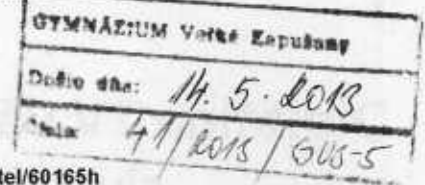 GYMNÁZIUM Veľké Kapušany
Došlo dňa: 14. 5. 2013
Číslo: 41/2013/GVS-5
tel/60165h